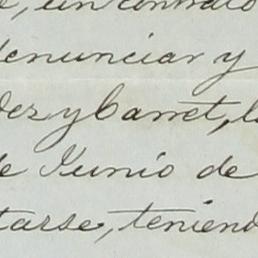 , un contrato
denunciar y
dez y Carret, l
de Junio de
tarse, teniend